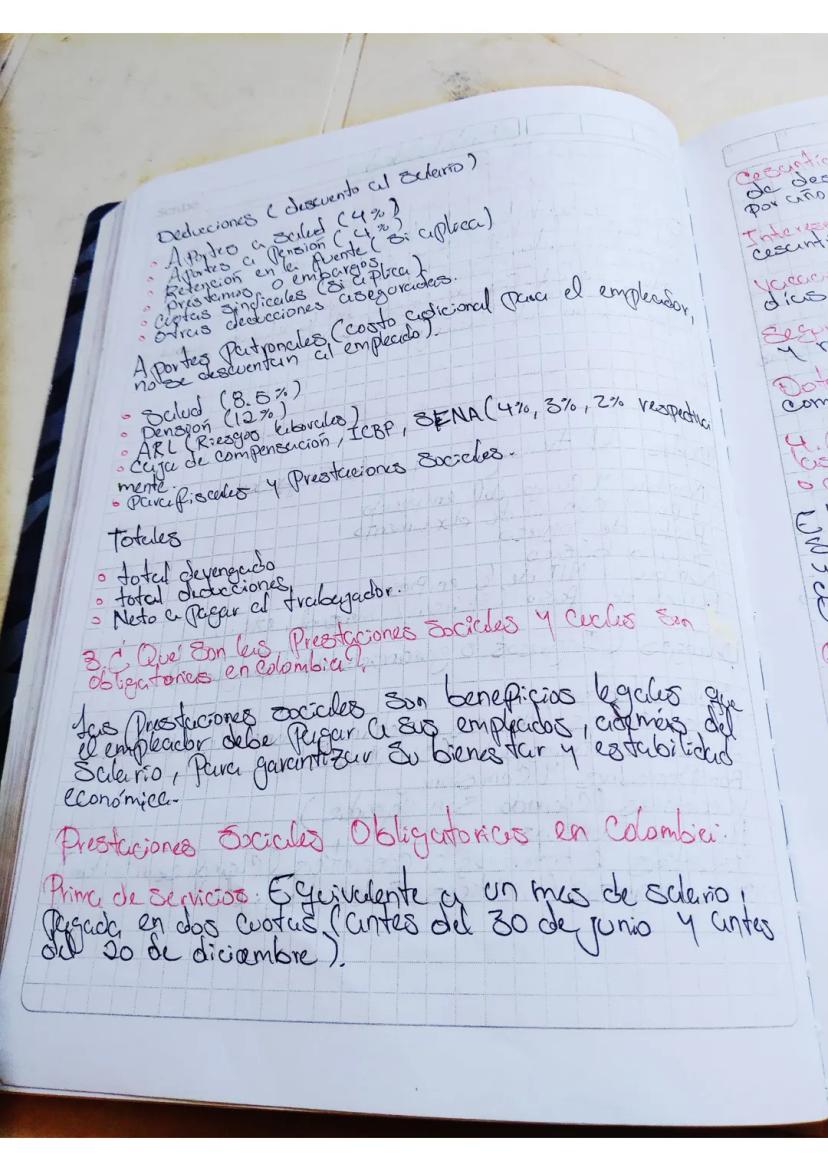 Deducciones (descuento al salario)
• Aportes a salud (4%)
• Aportes a pensión (4%)
• Retención en la fuente (si aplica)
• prestamos o embargos.
• cuotas sindicales (si aplica)
• otras deducciones aseguradas.
Aportes Patronales (costo adicional para el empleador,
no se descuentan al empleado).
• Salud (8.5%)
• Pensión (12%)
• ARL (Riesgos laborales)
• Caja de compensación, ICBP, SENA (4%, 3%, 2% respectiva
mente.
• Parafiscales y Prestaciones Sociales.
Totales
• total devengado
• total deducciones
• Neto a pagar al trabajador.
3. ¿Qué son las Prestaciones Sociales y cuales son
obligatorias en Colombia?
Las Prestaciones sociales son beneficios legales que
el empleador debe pagar a sus empleados, además del
salario, para garantizar su bienestar y estabilidad
económica.
Prestaciones Sociales Obligatorias en Colombia.
Prima de servicios: Equivalente a un mes de salario,
Pagada en dos cuotas (antes del 30 de junio y antes
del 20 de diciembre).
Cesantía
de des
por año
Interes
cesant
Vacac
dias
Segu
y r
Dot
com
4.